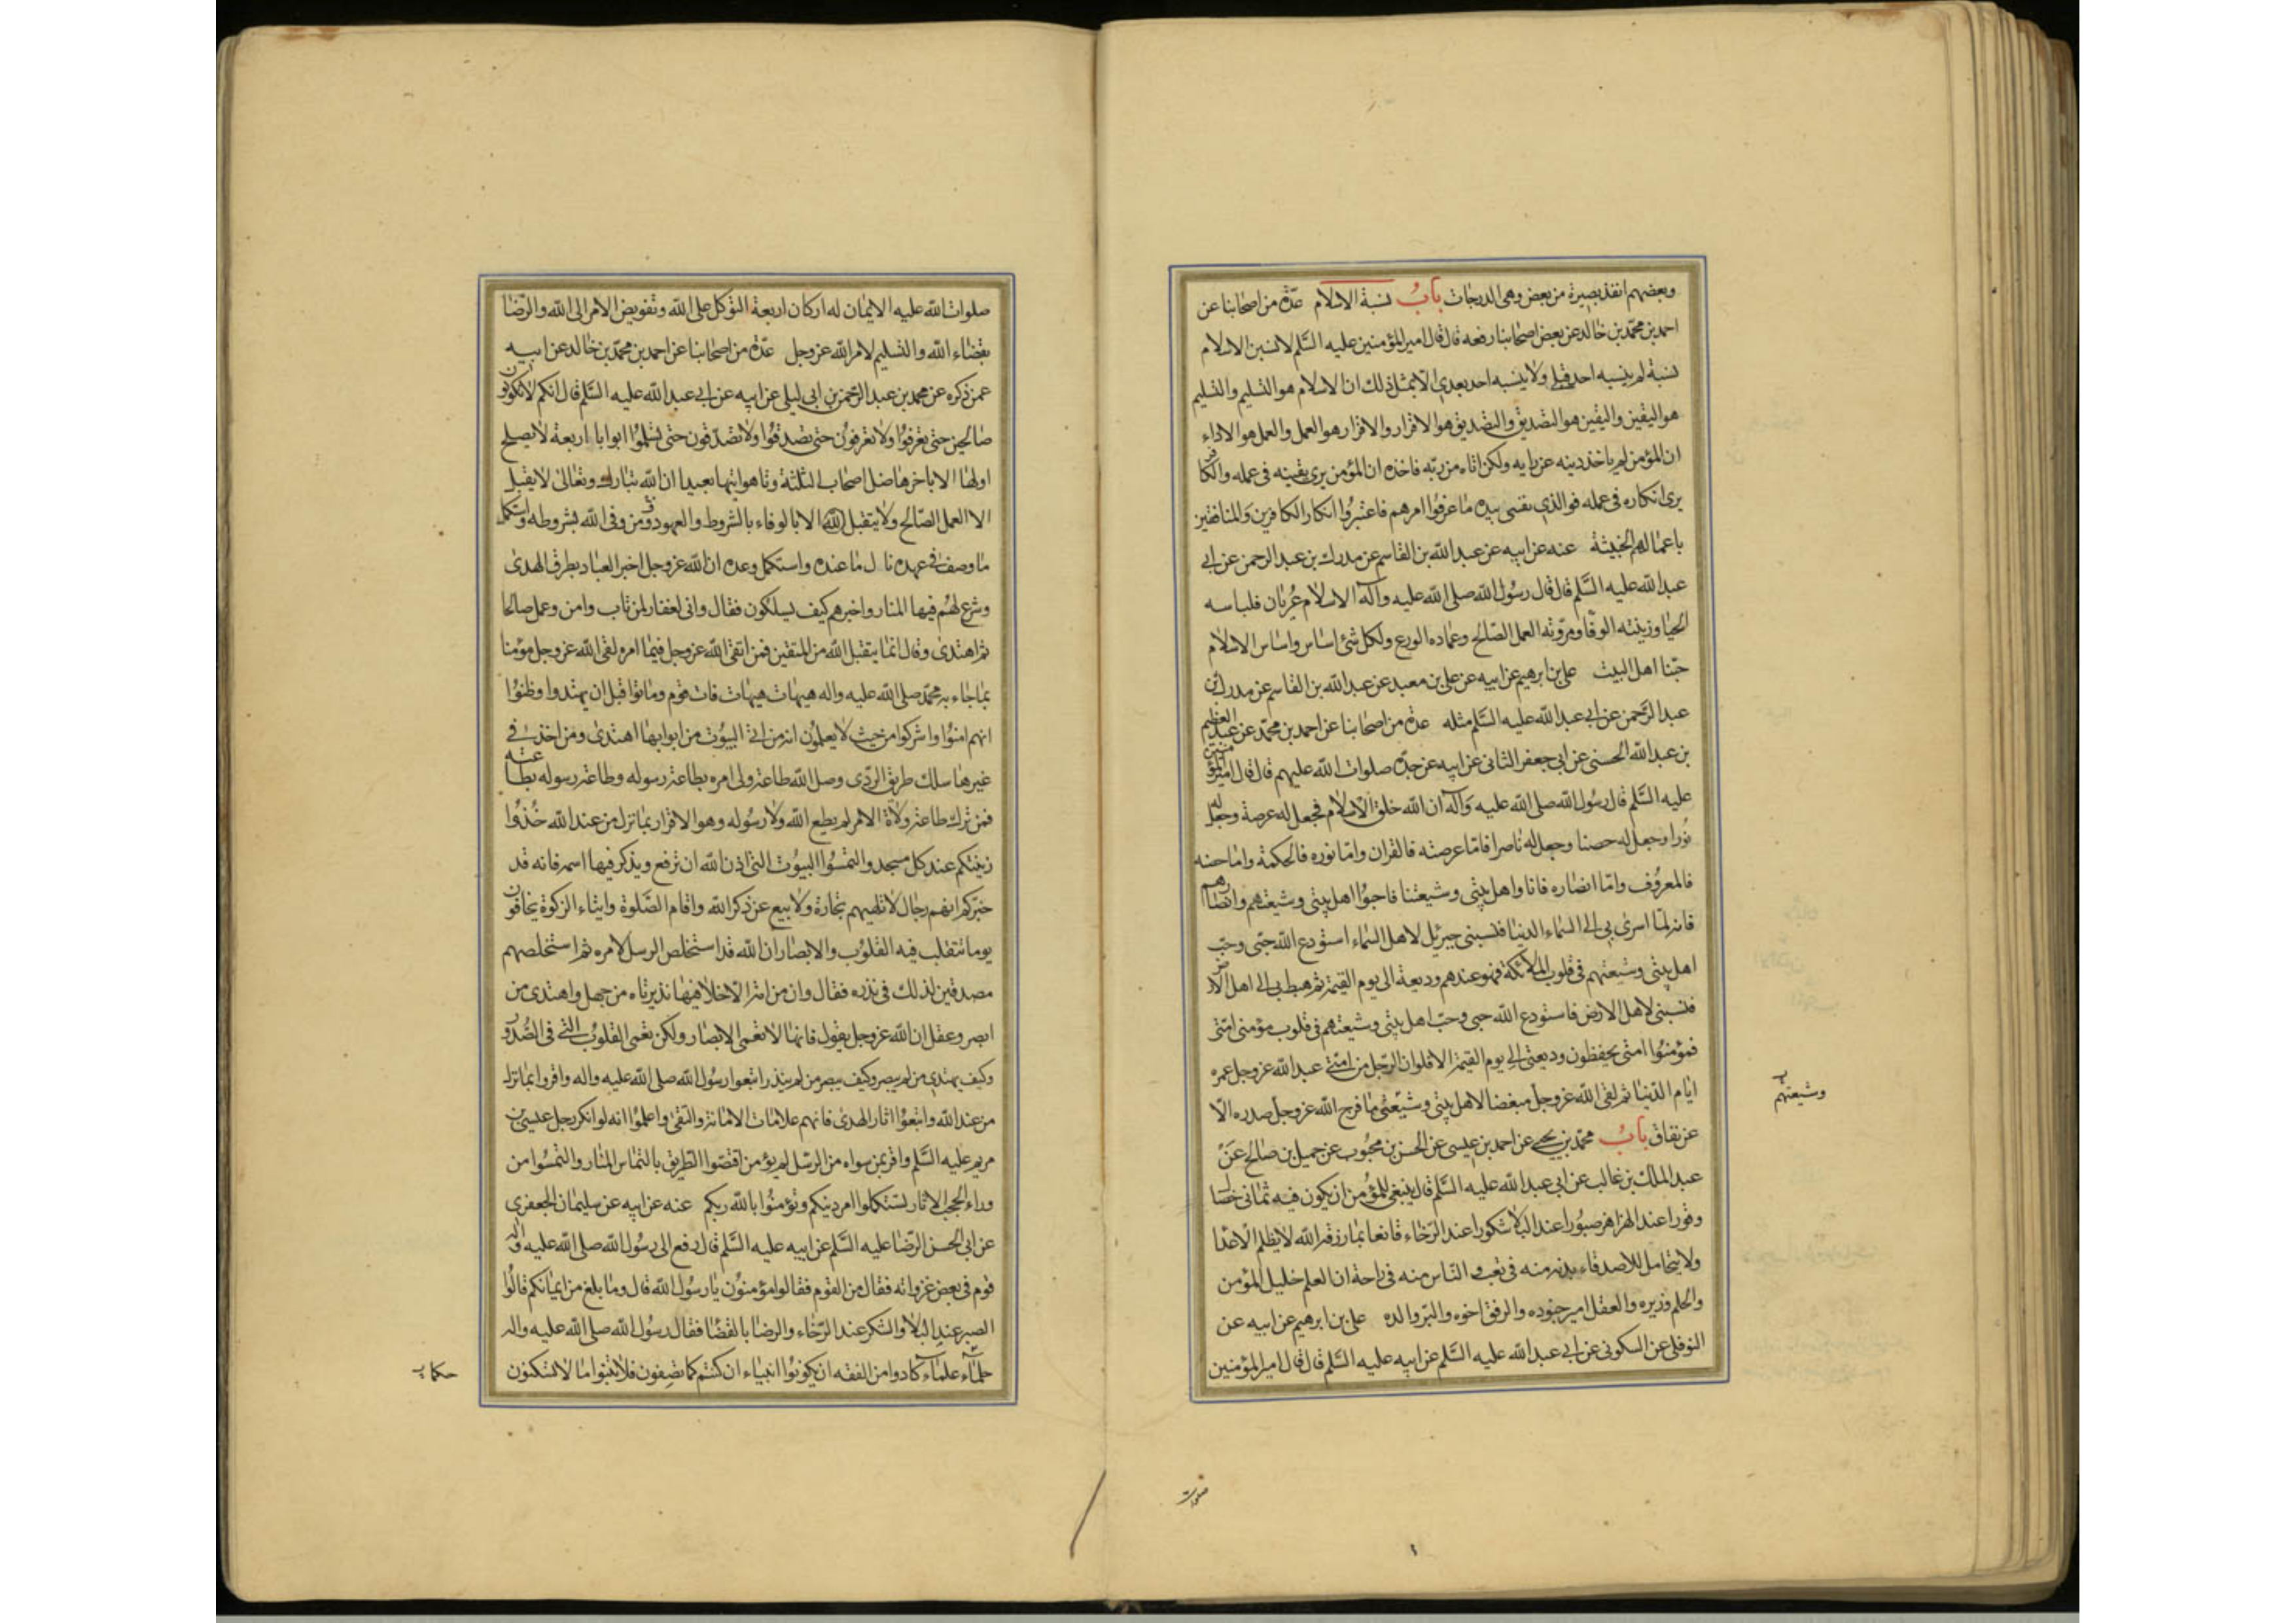 وبعضهم انفذ بصيرة من بعض وهى الدرجات باب نسبة الاسلام عدّة من اصحابنا عن
احمد بن محمّد بن خالد عن بعض اصحابنا رفعه قال قال امير المؤمنين عليه السَّلم لانسبن الاسلام
نسبة لم ينسبه احد قبلى ولا ينسبه احد بعدى الّا بمثل ذلك ان الاسلام هو التسليم والتسليم
هو اليقين واليقين هو التصديق والتصديق هو الاقرار والاقرار هو العمل والعمل هو الاداء
ان المؤمن لم ياخذ دينه عن رايه ولكن اتاه من ربّه فاخذه ان المؤمن يرى يقينه فى عمله والكافر
يرى انكاره فى عمله فوالذى نفسى بيده ما عرفوا امرهم فاعتبروا انكار الكافرين والمنافقين
باعمالهم الخبيثة عنه عن ابيه عن عبد الله بن القاسم عن مدرك بن عبد الرحمن عن ابى
عبد الله عليه السَّلم قال قال رسُول الله صلى الله عليه وآله الاسلام عُريان فلباسه
الحيا وزينته الوقا ومروّته العمل الصّالح وعماده الورع ولكل شئ اساس واساس الاسلام
حبّنا اهل البيت على بن ابرهيم عن ابيه عن على بن معبد عن عبد الله بن القاسم عن مدرك بن
عبد الرّحمن عن ابى عبد الله عليه السَّلم مثله عدّة من اصحابنا عن احمد بن محمّد عن عبد العظيم
بن عبد الله الحسنى عن ابى جعفر الثانى عن ابيه عن جدّه صلوات الله عليهم قال قال امير المؤمنين
عليه السَّلم قال رسُول الله صلى الله عليه وآله ان الله خلق الاسلام فجعل له عرصة وجعل له
نُورا وجعل له حصنا وجعل له ناصرا فامّا عرصته فالقران وامّا نوره فالحكمة وامّا حصنه
فالمعرُوف وامّا انصاره فانا واهل بيتى وشيعتنا فاحبوا اهل بيتى وشيعتهم وانصارهم
فانه لمّا اسرى بى الى السّماء الدنيا فنسبنى جبرئيل لاهل السّماء استودع الله حبّى وحبّ
اهل بيتى وشيعتهم فى قلوب الملائكة فهو عندهم وديعة الى يوم القيمة ثم هبط بى الى اهل الارض
فنسبنى لاهل الارض فاستودع الله حبى وحبّ اهل بيتى وشيعتهم فى قلوب مؤمنى امّتى
فمؤمنُوا امتى يحفظون وديعتى الى يوم القيمة الا فلو ان الرّجل من امّتى عبد الله عزوجل عمره
ايّام الدّنيا ثم لقى الله عزوجل مبغضا لاهل بيتى وشيعتى ما فرج الله عزوجل صدره الّا
وشيعتهم
عن نفاق باب محمّد بن يحيى عن احمد بن عيسى عن الحسن بن محبُوب عن جميل بن صالح عن
عبد الملك بن غالب عن ابى عبد الله عليه السَّلم قال ينبغى للمؤمن ان يكون فيه ثمانى خصال
وقورا عند الهزاهز صبُورا عند البلا شكورا عند الرّخاء قانعا بما رزقه الله لا يظلم الاعدا
ولا يتحامل للاصدقاء بدنه منه فى تعب والنّاس منه فى راحة ان العلم خليل المؤمن
والحلم وزيره والعقل امير جنوده والرفق اخوه والبرّ والده على بن ابرهيم عن ابيه عن
النوفلى عن السكونى عن ابى عبد الله عليه السَّلم عن ابيه عليه السَّلم قال قال امير المؤمنين
صلوات
صلوات الله عليه الايمان له اركان اربعة التوكل على الله وتفويض الامر الى الله والرّضا
بقضاء الله والتسليم لامر الله عزوجل عدّة من اصحابنا عن احمد بن محمّد بن خالد عن ابيه
عمن ذكره عن محمد بن عبد الرّحمن بن ابى ليلى عن ابيه عن ابى عبد الله عليه السَّلم قال انكم لا تكونون
صالحين حتى تعرفوا ولا تعرفون حتى تصدقوا ولا تصدّقون حتى تسلموا ابوابا اربعة لا يصلح
اولها الا باخرها ضل اصحاب الثلثة وتاهوا تيها بعيدا ان الله تبارك وتعالى لا يقبل
الا العمل الصّالح ولا يتقبل الله الا بالوفاء بالشروط والعهود ومن وفى الله بشروطه واستكمل
ما وصف فى عهده نال ما عنده واستكمل وعده ان الله عزوجل اخبر العباد بطرق الهدى
وشرع لهم فيها المنار واخبرهم كيف يسلكون فقال وانى لغفار لمن تاب وامن وعمل صالحا
ثم اهتدى وقال انما يتقبل الله من المتقين فمن اتقى الله عزوجل فيما امره لقى الله عزوجل مؤمنا
بما جاء به محمّد صلى الله عليه واله هيهات هيهات فات قوم وماتوا قبل ان يهتدوا وظنوا
انهم امنُوا واشركوا من حيث لا يعلمُون انه من اتى البيُوت من ابوابها اهتدى ومن اخذ فى
غيرها سلك طريق الردى وصل الله طاعة ولى امره بطاعة رسوله وطاعة رسوله بطاعته
فمن ترك طاعة ولاة الامر لم يطع الله ولا رسُوله وهو الاقرار بما نزل من عند الله خُذُوا
زينتكم عند كل مسجد والتمسُوا البيُوت التى اذن الله ان ترفع ويذكر فيها اسمه فانه قد
خبّركم انهم رجال لا تلهيهم تجارة ولا بيع عن ذكر الله واقام الصَّلوة وايتاء الزكوة يخافون
يوما تتقلب فيه القلُوب والابصار ان الله قد استخلص الرسل لامره ثم استخلصهم
مصدقين لذلك فى نذره فقال وان من امّة الّا خلا فيها نذير تاه من جهل واهتدى من
ابصر وعقل ان الله عزوجل يقول فانها لا تعمى الابصار ولكن تعمى القلوب التى فى الصُّدور
وكيف يهتدى من لم يبصر وكيف يبصر من لم ينذر اتبعوا رسُول الله صلى الله عليه واله واقروا بما نزل
من عند الله واتبعُوا اثار الهدى فانهم علامات الامانة والتقى واعلموا انه لو انكر رجل عيسى بن
مريم عليه السَّلم واقر بمن سواه من الرّسل لم يؤمن اقتصّوا الطريق بالتماس المنار والتمسُوا من
وراء الحجب الاثار تستكملوا امر دينكم وتؤمنُوا بالله ربكم عنه عن ابيه عن سليمان الجعفرى
عن ابى الحسن الرّضا عليه السَّلم عن ابيه عليه السَّلم قال رفع الى رسُول الله صلى الله عليه واله
قوم فى بعض غزواته فقال من القوم فقالوا مؤمنُون يا رسُول الله قال وما بلغ من ايمانكم قالُوا
الصبر عند البلا والشكر عند الرّخاء والرضا بالقضا فقال رسُول الله صلى الله عليه واله
حلماء علماء كادوا من الفقه ان يكونوا انبياء ان كنتم كما تصفون فلا تبنوا ما لا تسكنون
حكماء